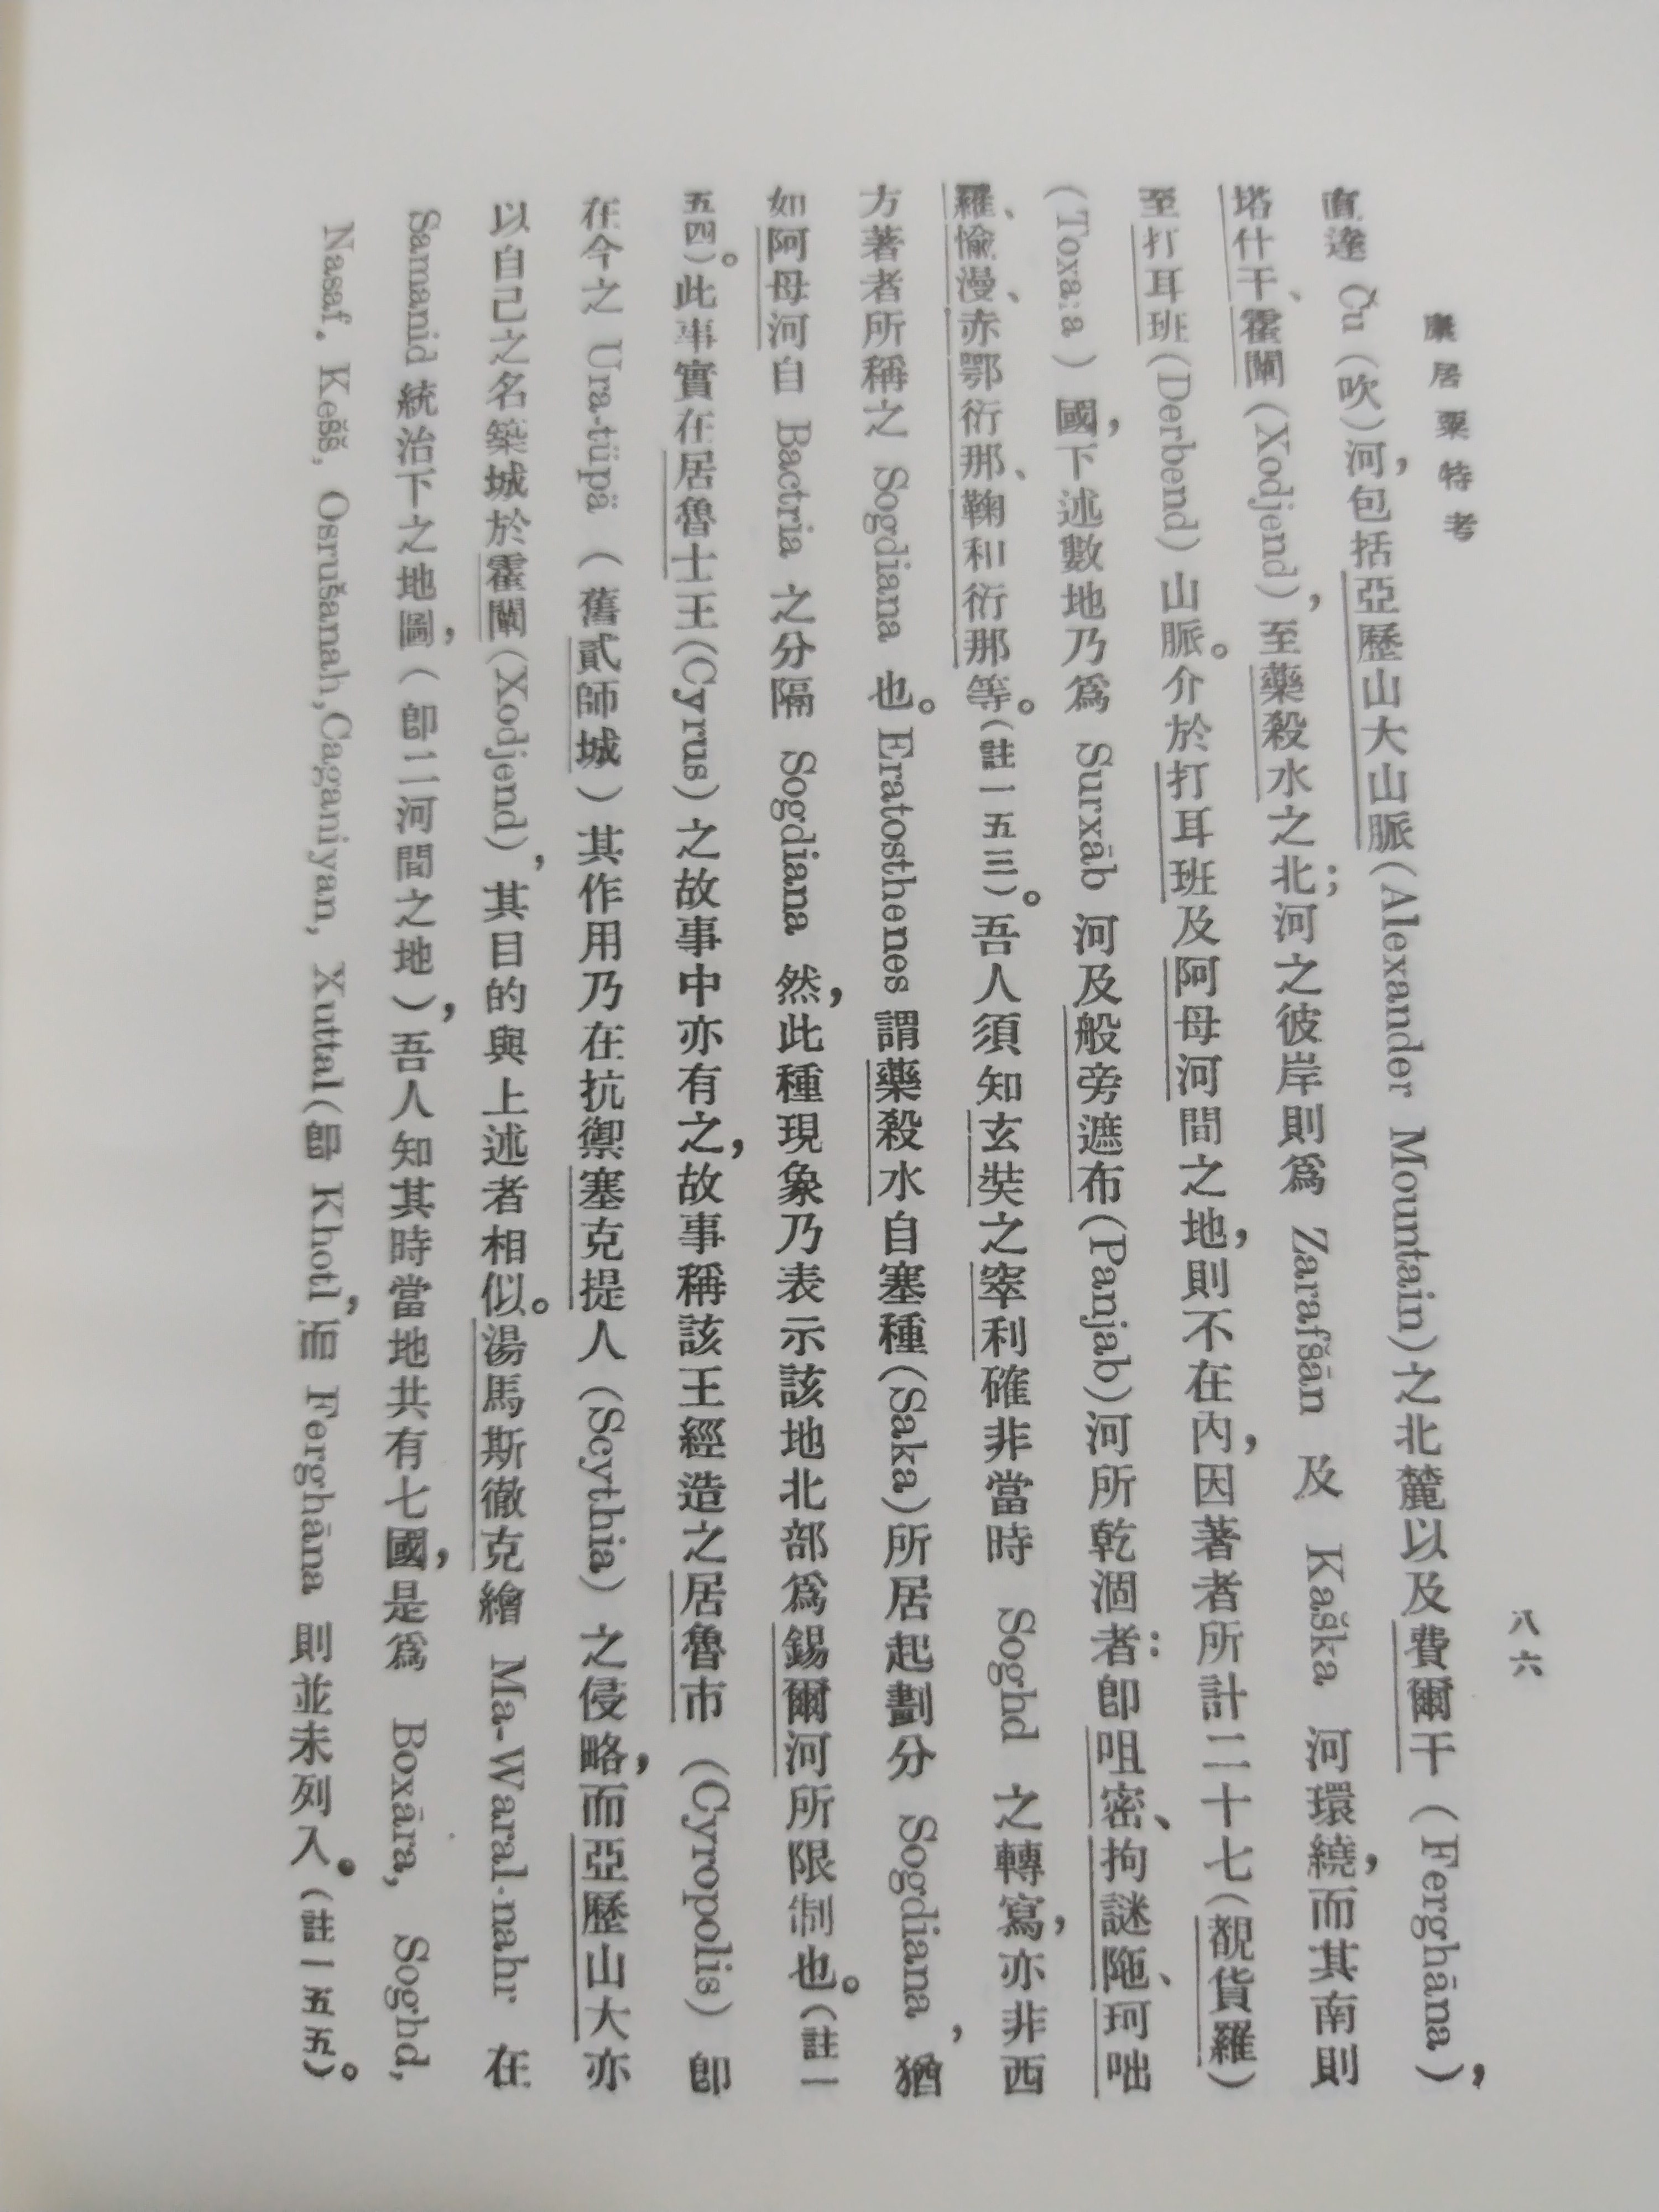 康居粟特考
八六
直達 Ču (吹)河,包括亞歷山大山脈(Alexander Mountain)之北麓以及費爾干 (Ferghāna),
塔什干、霍闡(Xodjend),至藥殺水之北;河之彼岸則爲 Zarafšān 及 Kaška 河環繞,而其南則
至打耳班(Derbend)山脈。介於打耳班及阿母河間之地,則不在內,因著者所計二十七(覩貨羅)
(Toxa:a)國,下述數地乃爲 Surxāb 河及般旁遮布(Panjab)河所乾涸者:卽咀密、拘謎陁、珂咄
羅、愉漫、赤鄂衍那、鞠和衍那等。(註一五三)。吾人須知玄奘之窣利確非當時 Soghd 之轉寫,亦非西
方著者所稱之 Sogdiana 也。Eratosthenes 謂藥殺水自塞種(Saka)所居起劃分 Sogdiana,猶
如阿母河自 Bactria 之分隔 Sogdiana 然,此種現象乃表示該地北部爲錫爾河所限制也。(註一
五四)。此事實在居魯士王(Cyrus)之故事中亦有之,故事稱該王經造之居魯市 (Cyropolis) 卽
在今之 Ura-tüpä (舊貳師城)其作用乃在抗禦塞克提人(Scythia)之侵略,而亞歷山大亦
以自己之名築城於霍闡(Xodjend),其目的與上述者相似。湯馬斯徹克繪 Ma-Waral-nahr 在
Samanid 統治下之地圖,(卽二河間之地),吾人知其時當地共有七國,是爲 Boxāra, Soghd,
Nasaf, Kešš, Osrušanah, Caganiyan, Xuttal(卽 Khotl,而 Ferghāna 則並未列入。(註一五五)。